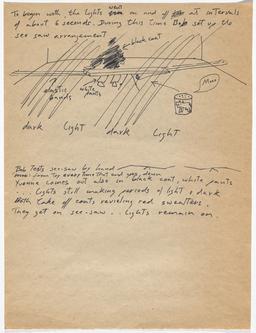 To begin with the lights went on and off at intervals
of about 6 seconds. During this time Bob set up the
see saw arrangement
black coat
elastic bands
white pants
Moo
dark light dark light
Bob Tests see-saw by hand
moo! from toy every time that end goes down
Yvonne comes out also in black coat, white pants
... Lights still making periods of light & dark
Both take off coats revieling red sweaters.
They get on see-saw... Lights remain on.